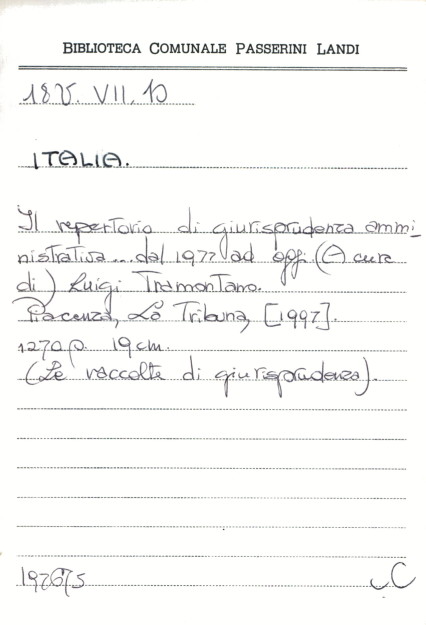 BIBLIOTECA COMUNALE PASSERINI LANDI
18V. VII. 10
ITALIA.
Il repertorio di giurisprudenza ammi-
nistrativa... dal 1977 ad oggi. (A cura
di) Luigi Tramontano.
Piacenza, La Tribuna, [1997].
1270 p. 19 cm.
(Le raccolte di giurisprudenza).
C